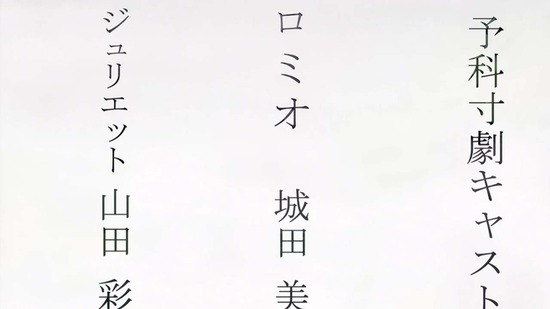 予科寸劇キャスト
ロミオ 城田 美
ジュリエット 山田 彩